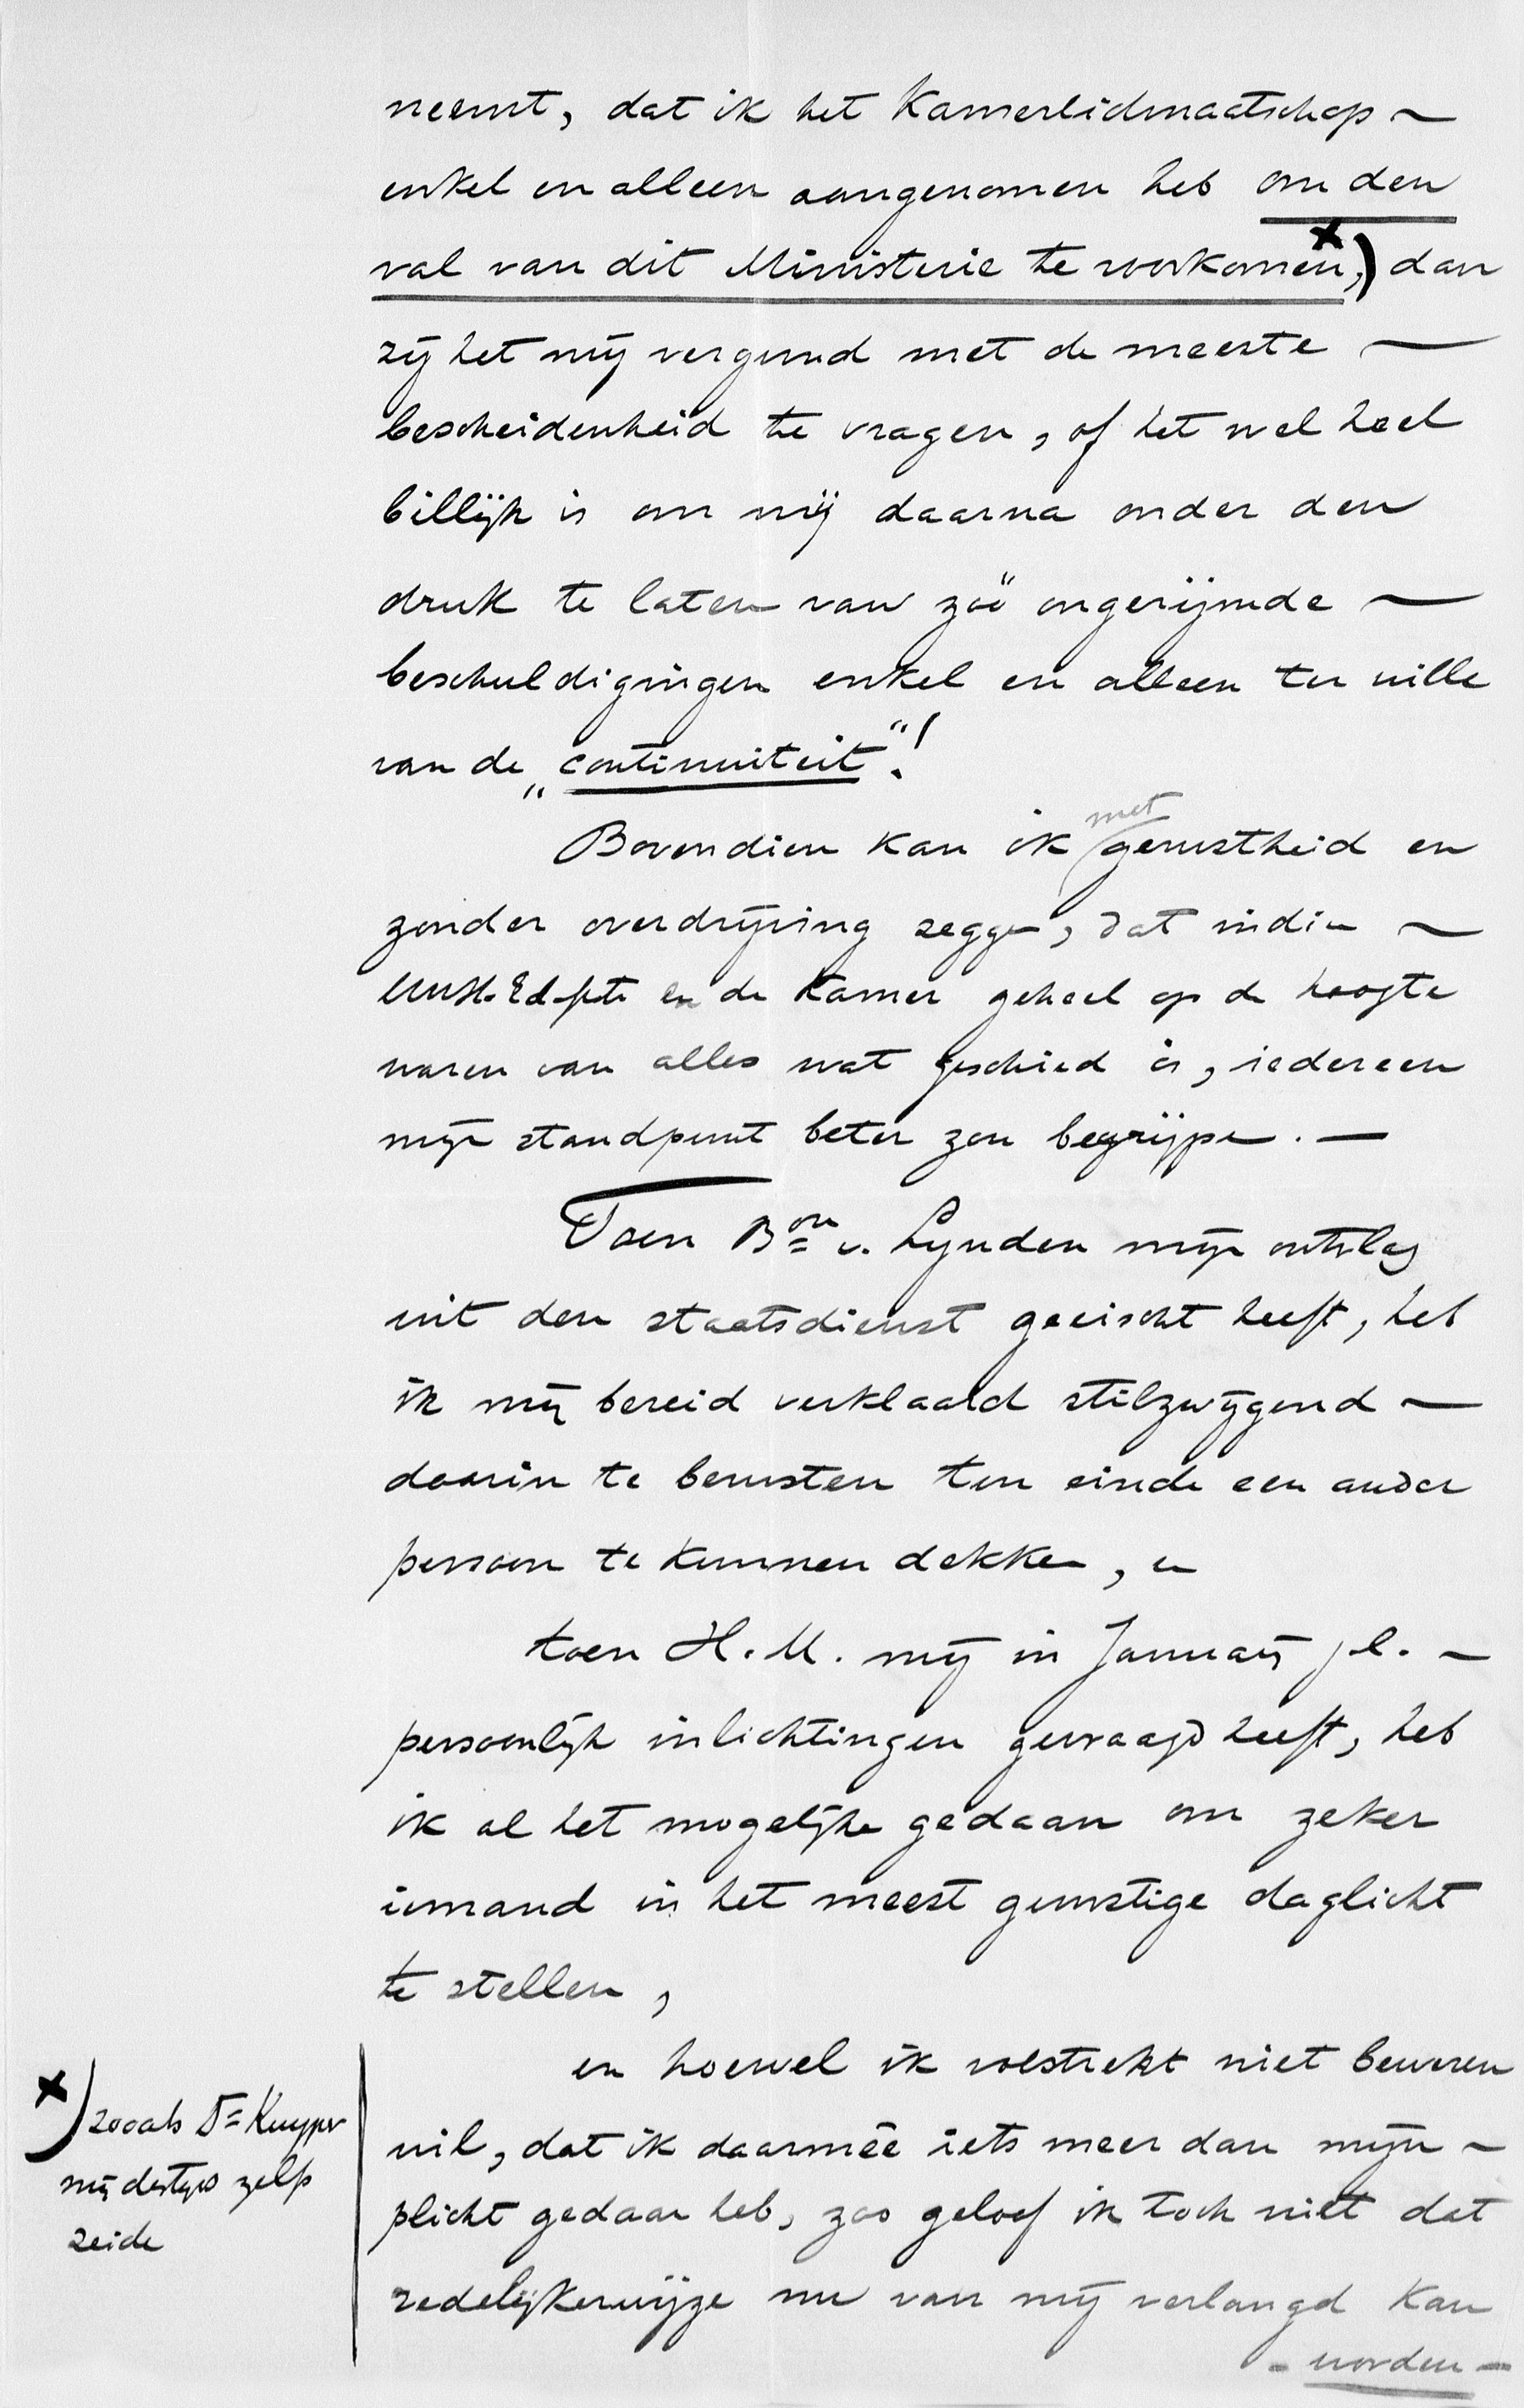 neemt, dat ik het Kamerlidmaatschap ~
enkel en alleen aangenomen heb om den
val van dit Ministerie te voorkomen, x) dan
zij het mij vergund met de meeste —
bescheidenheid te vragen, of het wel heel
billijk is om mij daarna onder den
druk te laten van zóó ongerijmde —
beschuldigingen enkel en alleen ter wille
van de „continuiteit"!
Bovendien kan ik met gerustheid en
zonder overdrijving zeggen, dat indien ~
UwH.Ed.gstr. en de Kamer geheel op de hoogte
waren van alles wat geschied is, iedereen
mijn standpunt beter zou begrijpen. —
Toen Bon v. Lynden mijn ontslag
uit den staatsdienst geeischt heeft, heb
ik mij bereid verklaard stilzwijgend —
daarin te berusten ten einde een ander
persoon te kunnen dekken, en
toen H.M. mij in Januarij jl. ~
persoonlijk inlichtingen gevraagd heeft, heb
ik al het mogelijke gedaan om zeker
iemand in het meest gunstige daglicht
te stellen,
en hoewel ik volstrekt niet beweren
wil, dat ik daarmêe iets meer dan mijn ~
plicht gedaan heb, zoo geloof ik toch niet dat
redelijkerwijze nu van mij verlangd kan
- worden -
x) zooals Dr Kuyper
mij destijds zelf
zeide